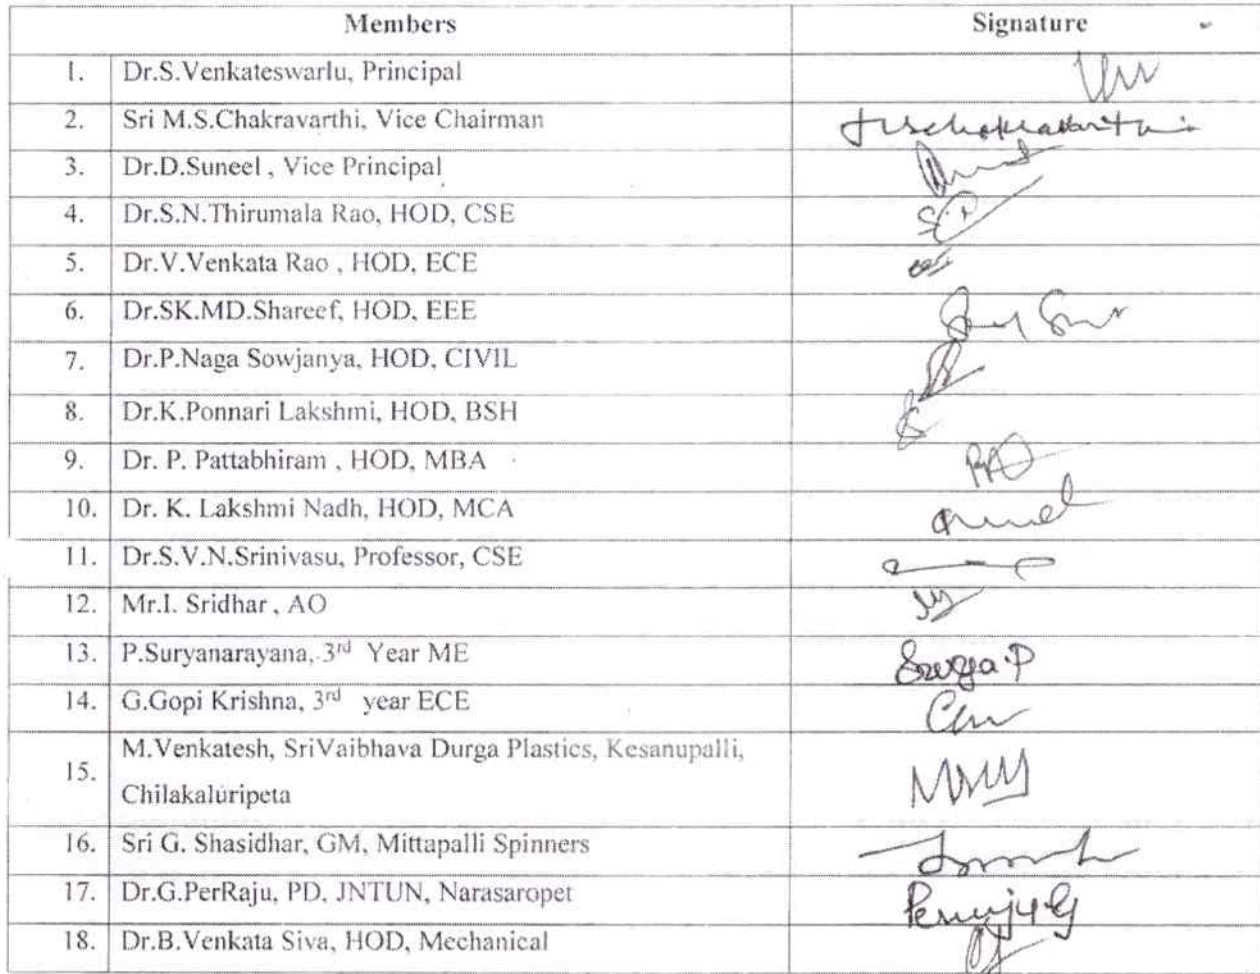 Members Signature
1. Dr.S.Venkateswarlu, Principal
2. Sri M.S.Chakravarthi, Vice Chairman
3. Dr.D.Suneel , Vice Principal
4. Dr.S.N.Thirumala Rao, HOD, CSE
5. Dr.V.Venkata Rao , HOD, ECE
6. Dr.SK.MD.Shareef, HOD, EEE
7. Dr.P.Naga Sowjanya, HOD, CIVIL
8. Dr.K.Ponnari Lakshmi, HOD, BSH
9. Dr. P. Pattabhiram , HOD, MBA
10. Dr. K. Lakshmi Nadh, HOD, MCA
11. Dr.S.V.N.Srinivasu, Professor, CSE
12. Mr.I. Sridhar , AO
13. P.Suryanarayana, 3rd Year ME Surya.P
14. G.Gopi Krishna, 3rd year ECE
15. M.Venkatesh, SriVaibhava Durga Plastics, Kesanupalli,
Chilakaluripeta
16. Sri G. Shasidhar, GM, Mittapalli Spinners
17. Dr.G.PerRaju, PD, JNTUN, Narasaropet
18. Dr.B.Venkata Siva, HOD, Mechanical